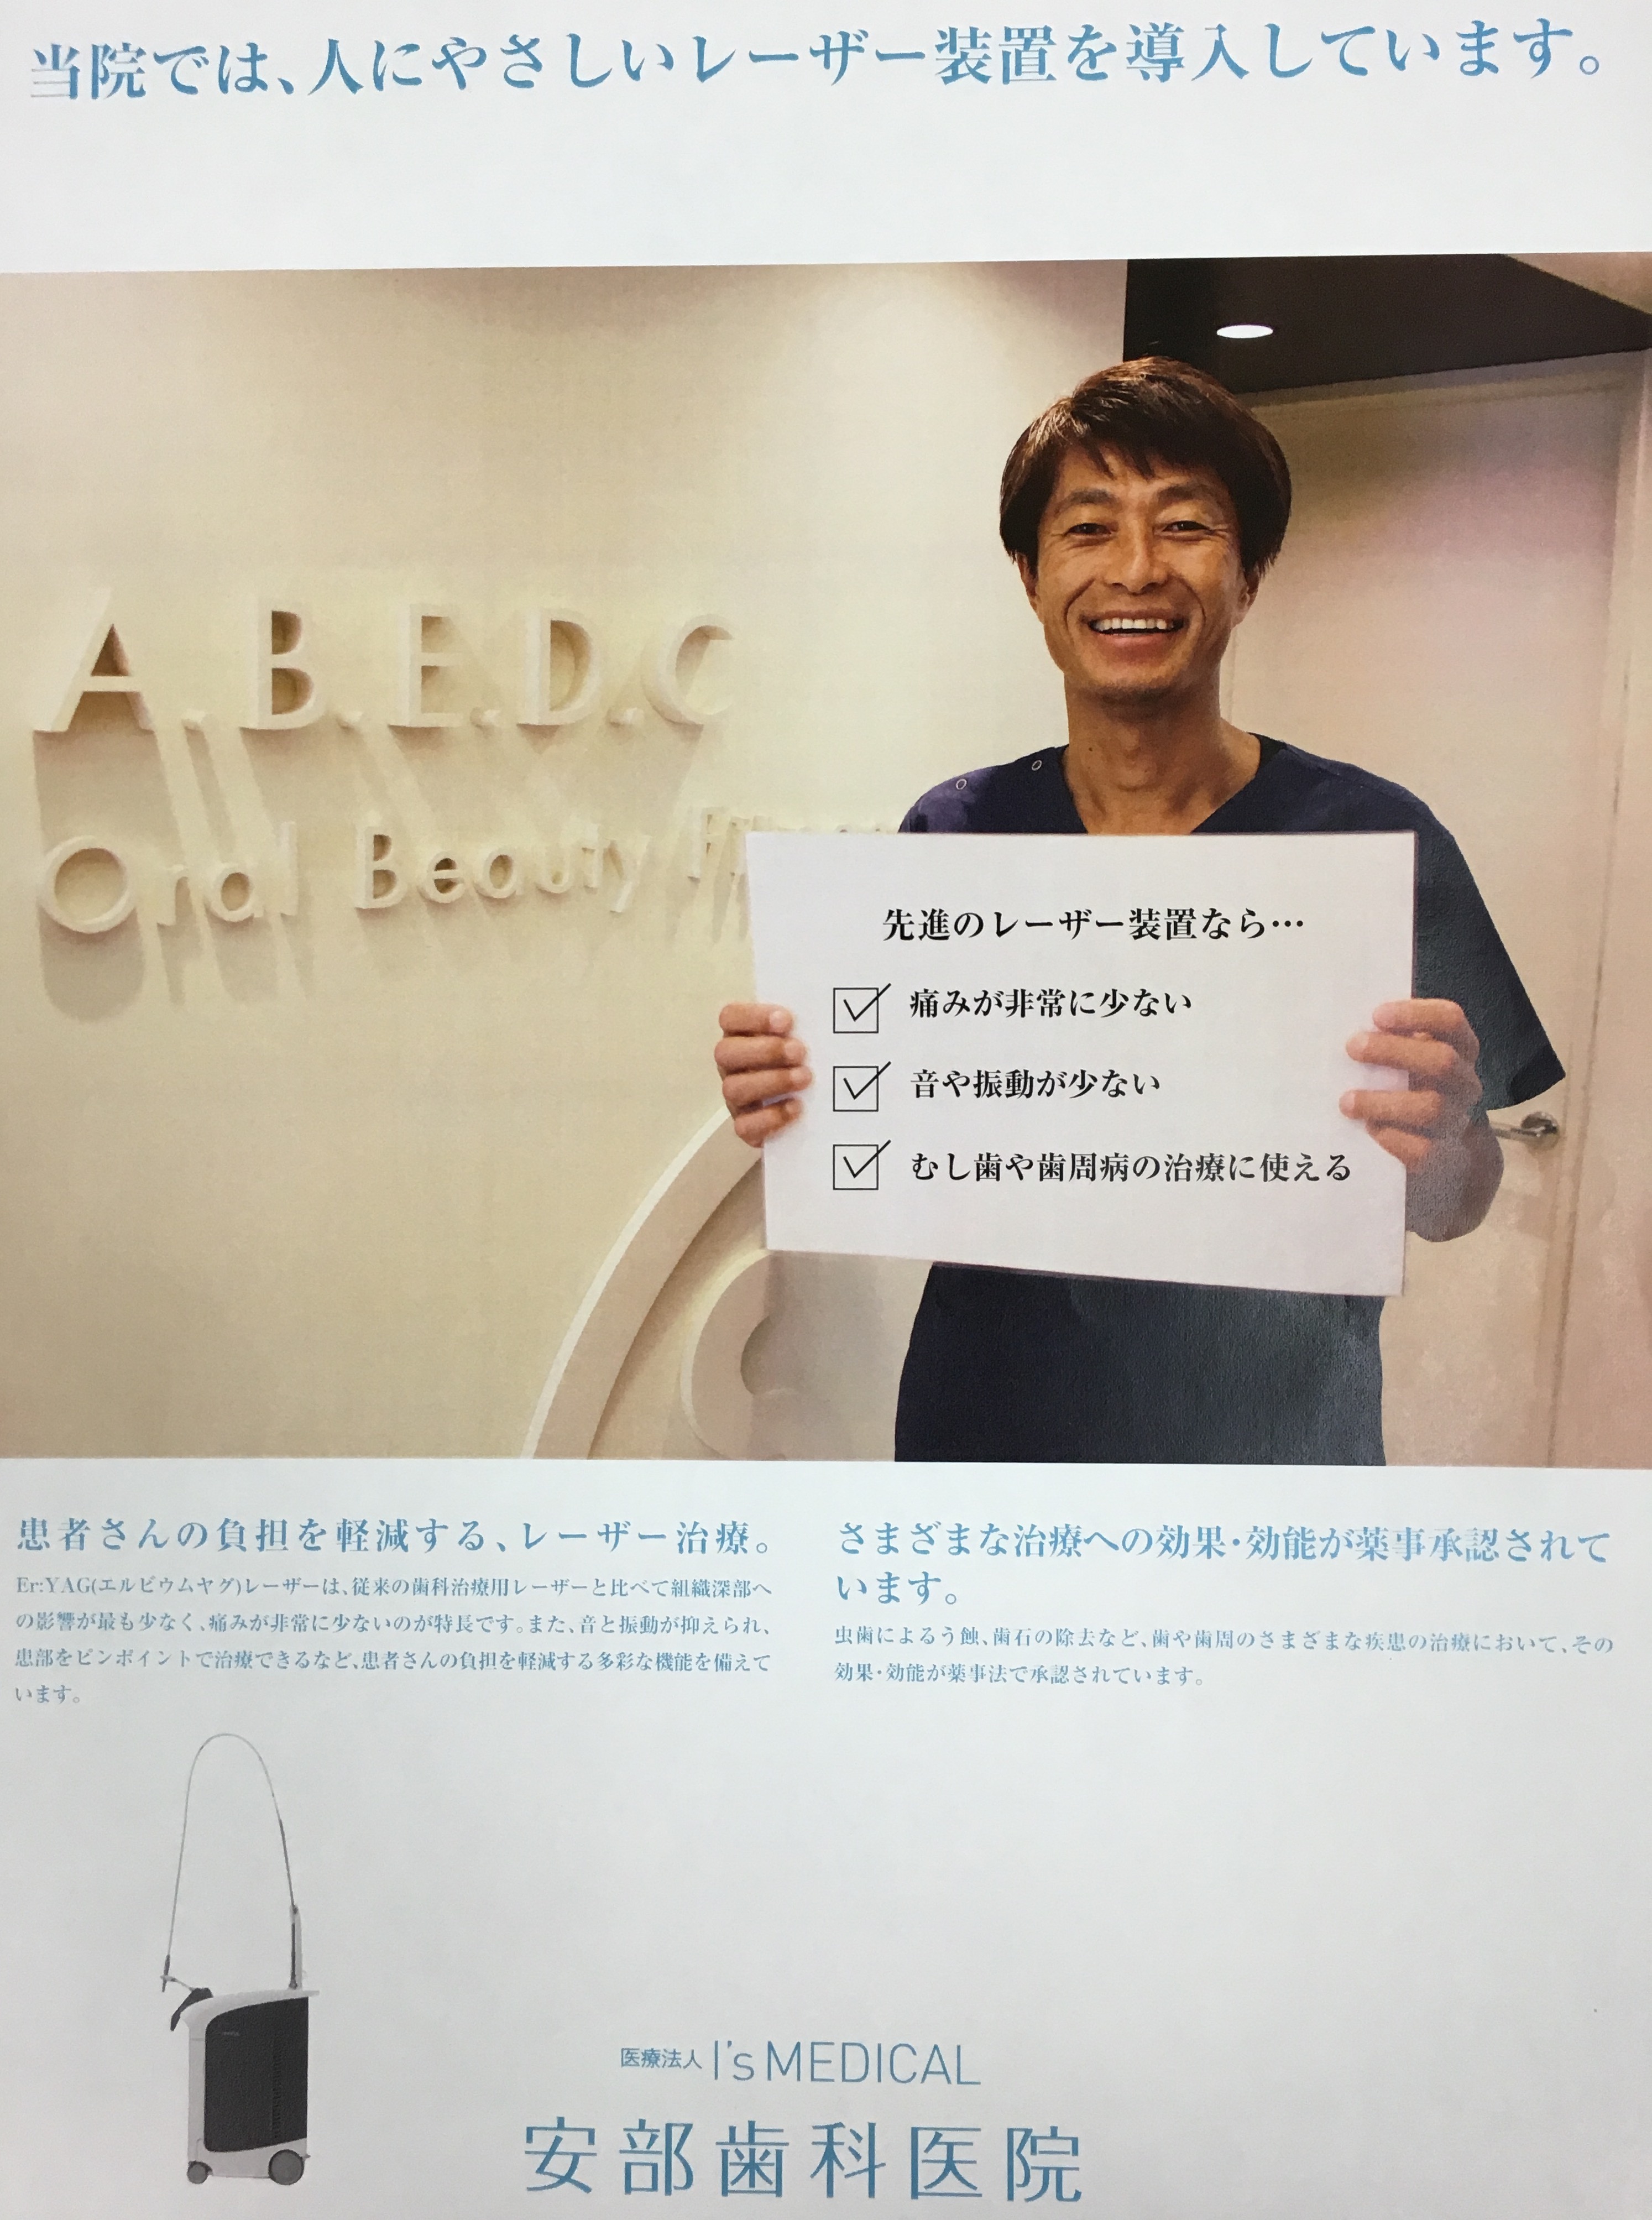 当院では、人にやさしいレーザー装置を導入しています。
A.B.E.D.C
Oral Beauty
先進のレーザー装置なら…
痛みが非常に少ない
音や振動が少ない
むし歯や歯周病の治療に使える
患者さんの負担を軽減する、レーザー治療。
Er:YAG(エルビウムヤグ)レーザーは、従来の歯科治療用レーザーと比べて組織深部へ
の影響が最も少なく、痛みが非常に少ないのが特長です。また、音と振動が抑えられ、
患部をピンポイントで治療できるなど、患者さんの負担を軽減する多彩な機能を備えて
います。
さまざまな治療への効果・効能が薬事承認されて
います。
虫歯によるう蝕、歯石の除去など、歯や歯周のさまざまな疾患の治療において、その
効果・効能が薬事法で承認されています。
医療法人 I's MEDICAL
安部歯科医院